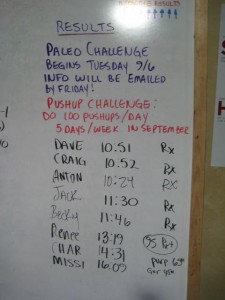 RESULTS
PALEO CHALLENGE
BEGINS TUESDAY 9/6
INFO WILL BE EMAILED
BY FRIDAY!
PUSHUP CHALLENGE:
DO 100 PUSHUPS/DAY
5 DAYS/WEEK IN SEPTEMBER
DAVE 10:51 RX
CRAIG 10:52 RX
ANTON 10:24 RX
JACK 11:30 RX
Becky 11:46 RX
Renee 13:19
CHAR 14:31
MISSI 16:09